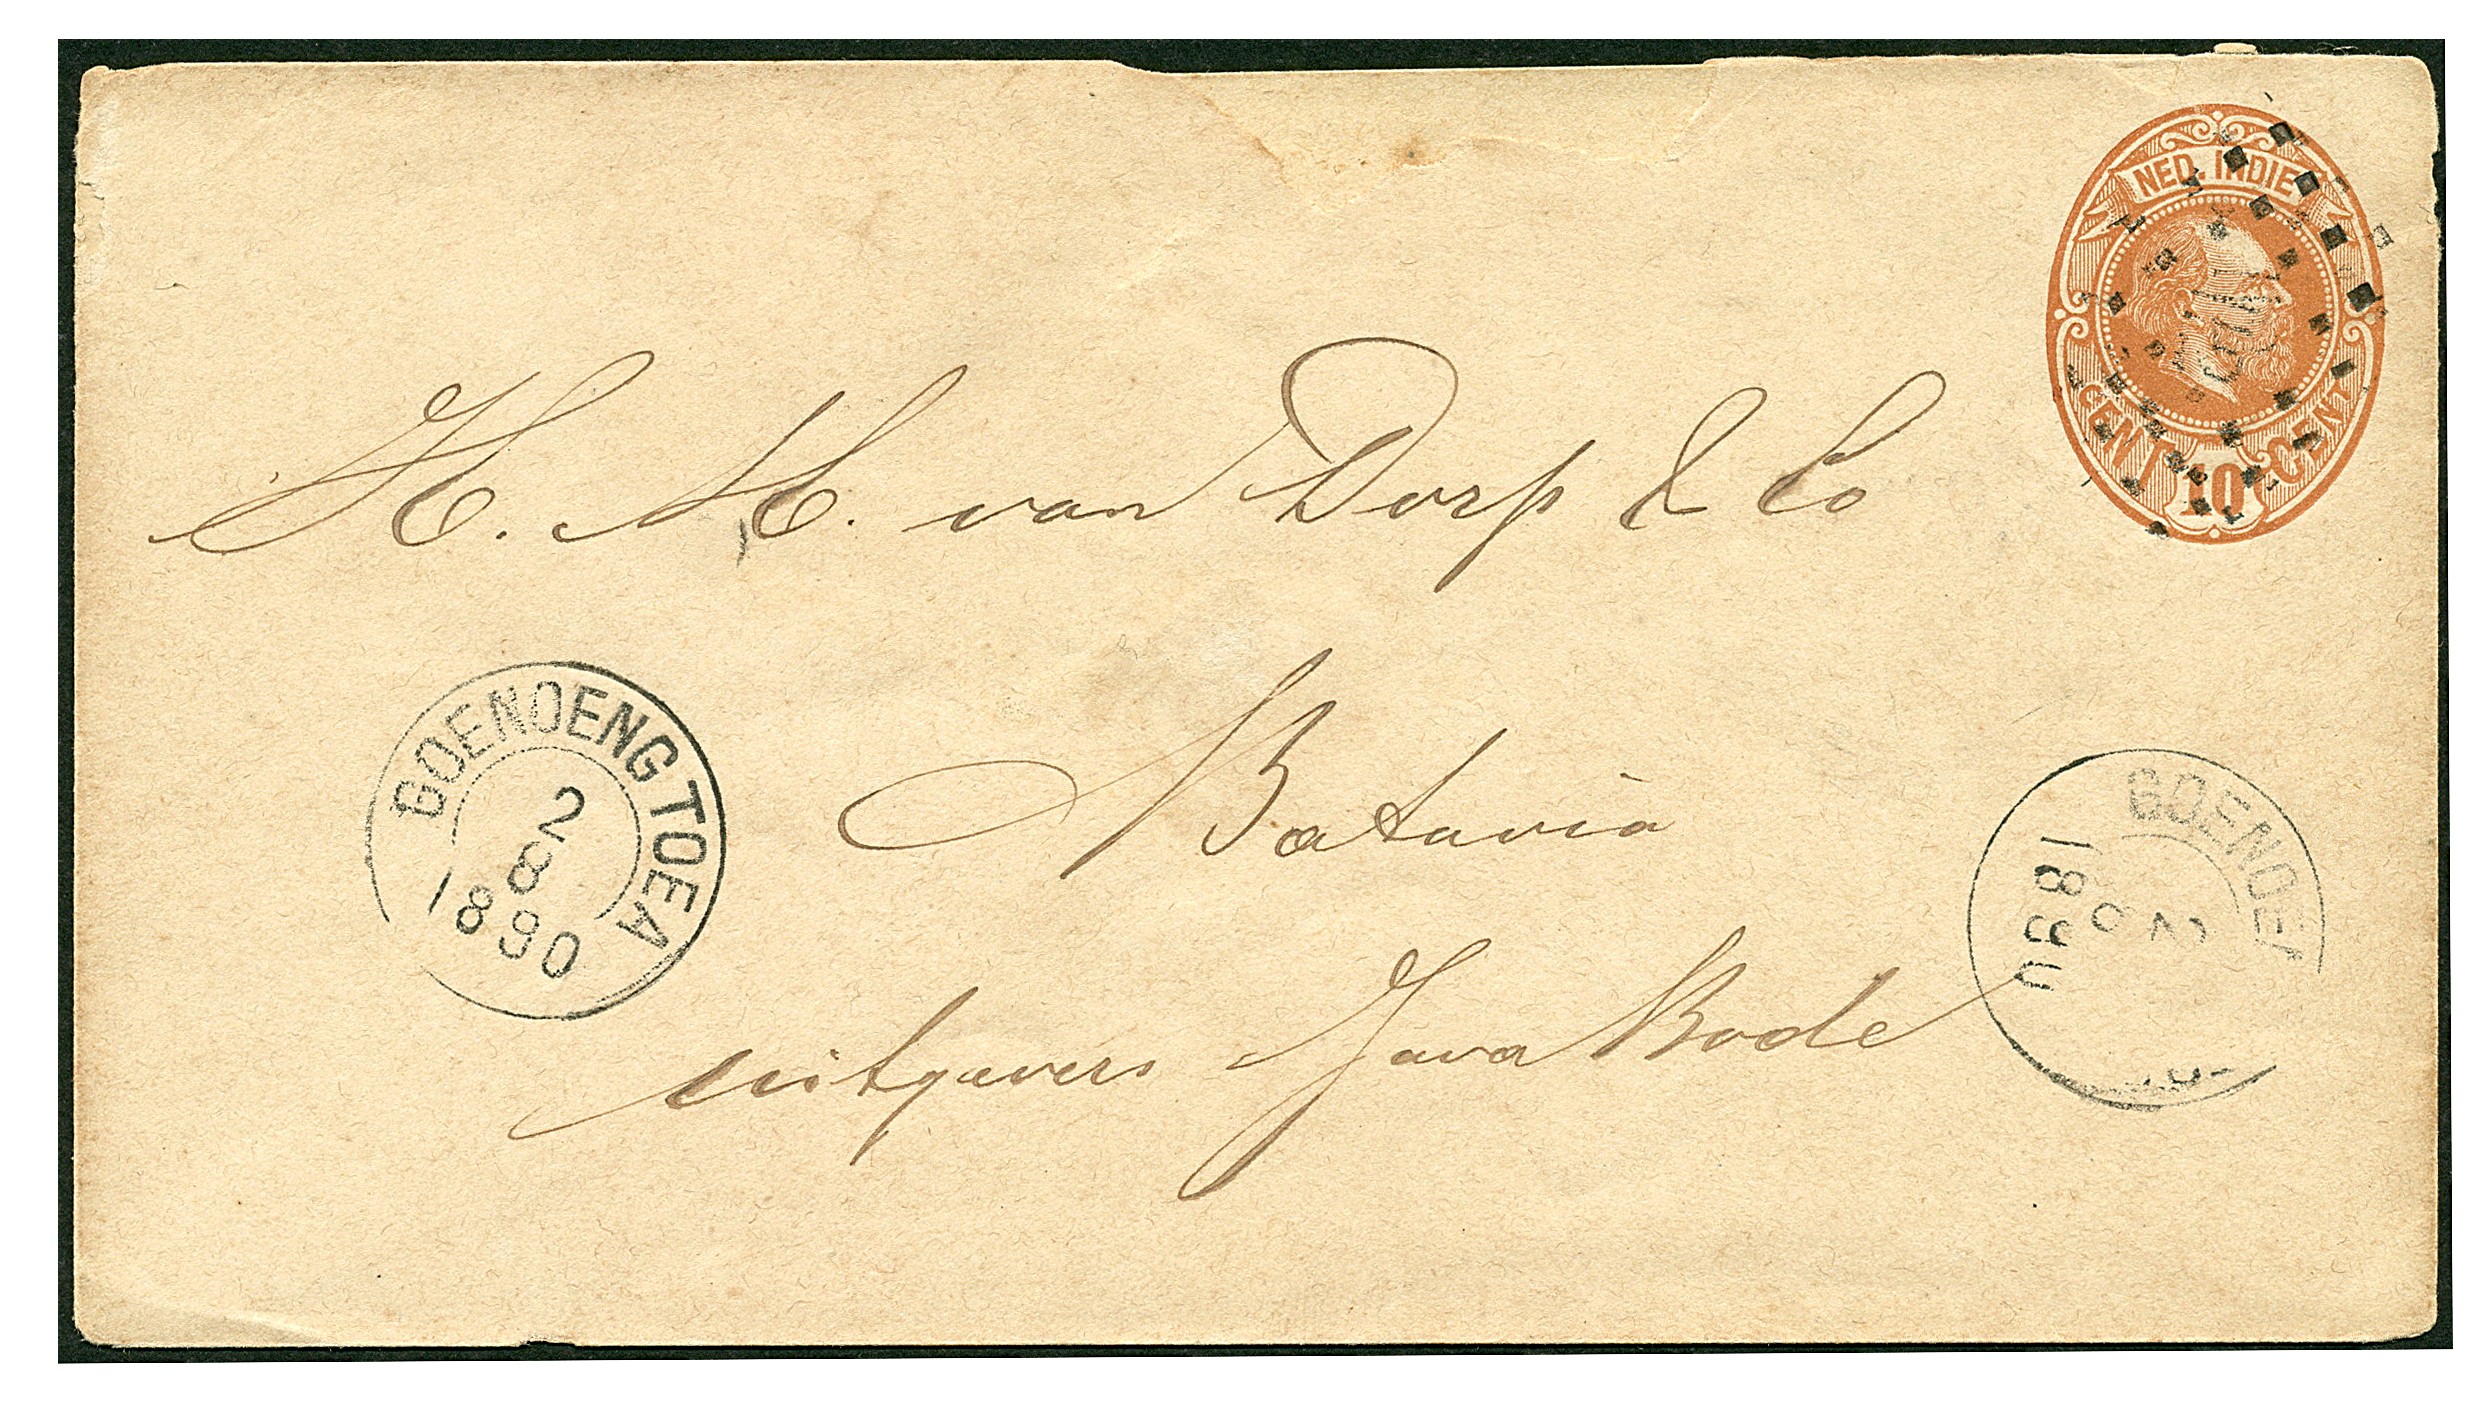 NED. INDIE
CENT 10 CENT
H. M. van Dorp & Co
Batavia
uitgevers Java Bode
GOENOENG TOEA
2
8
1890
GOENOE
2
8
1890